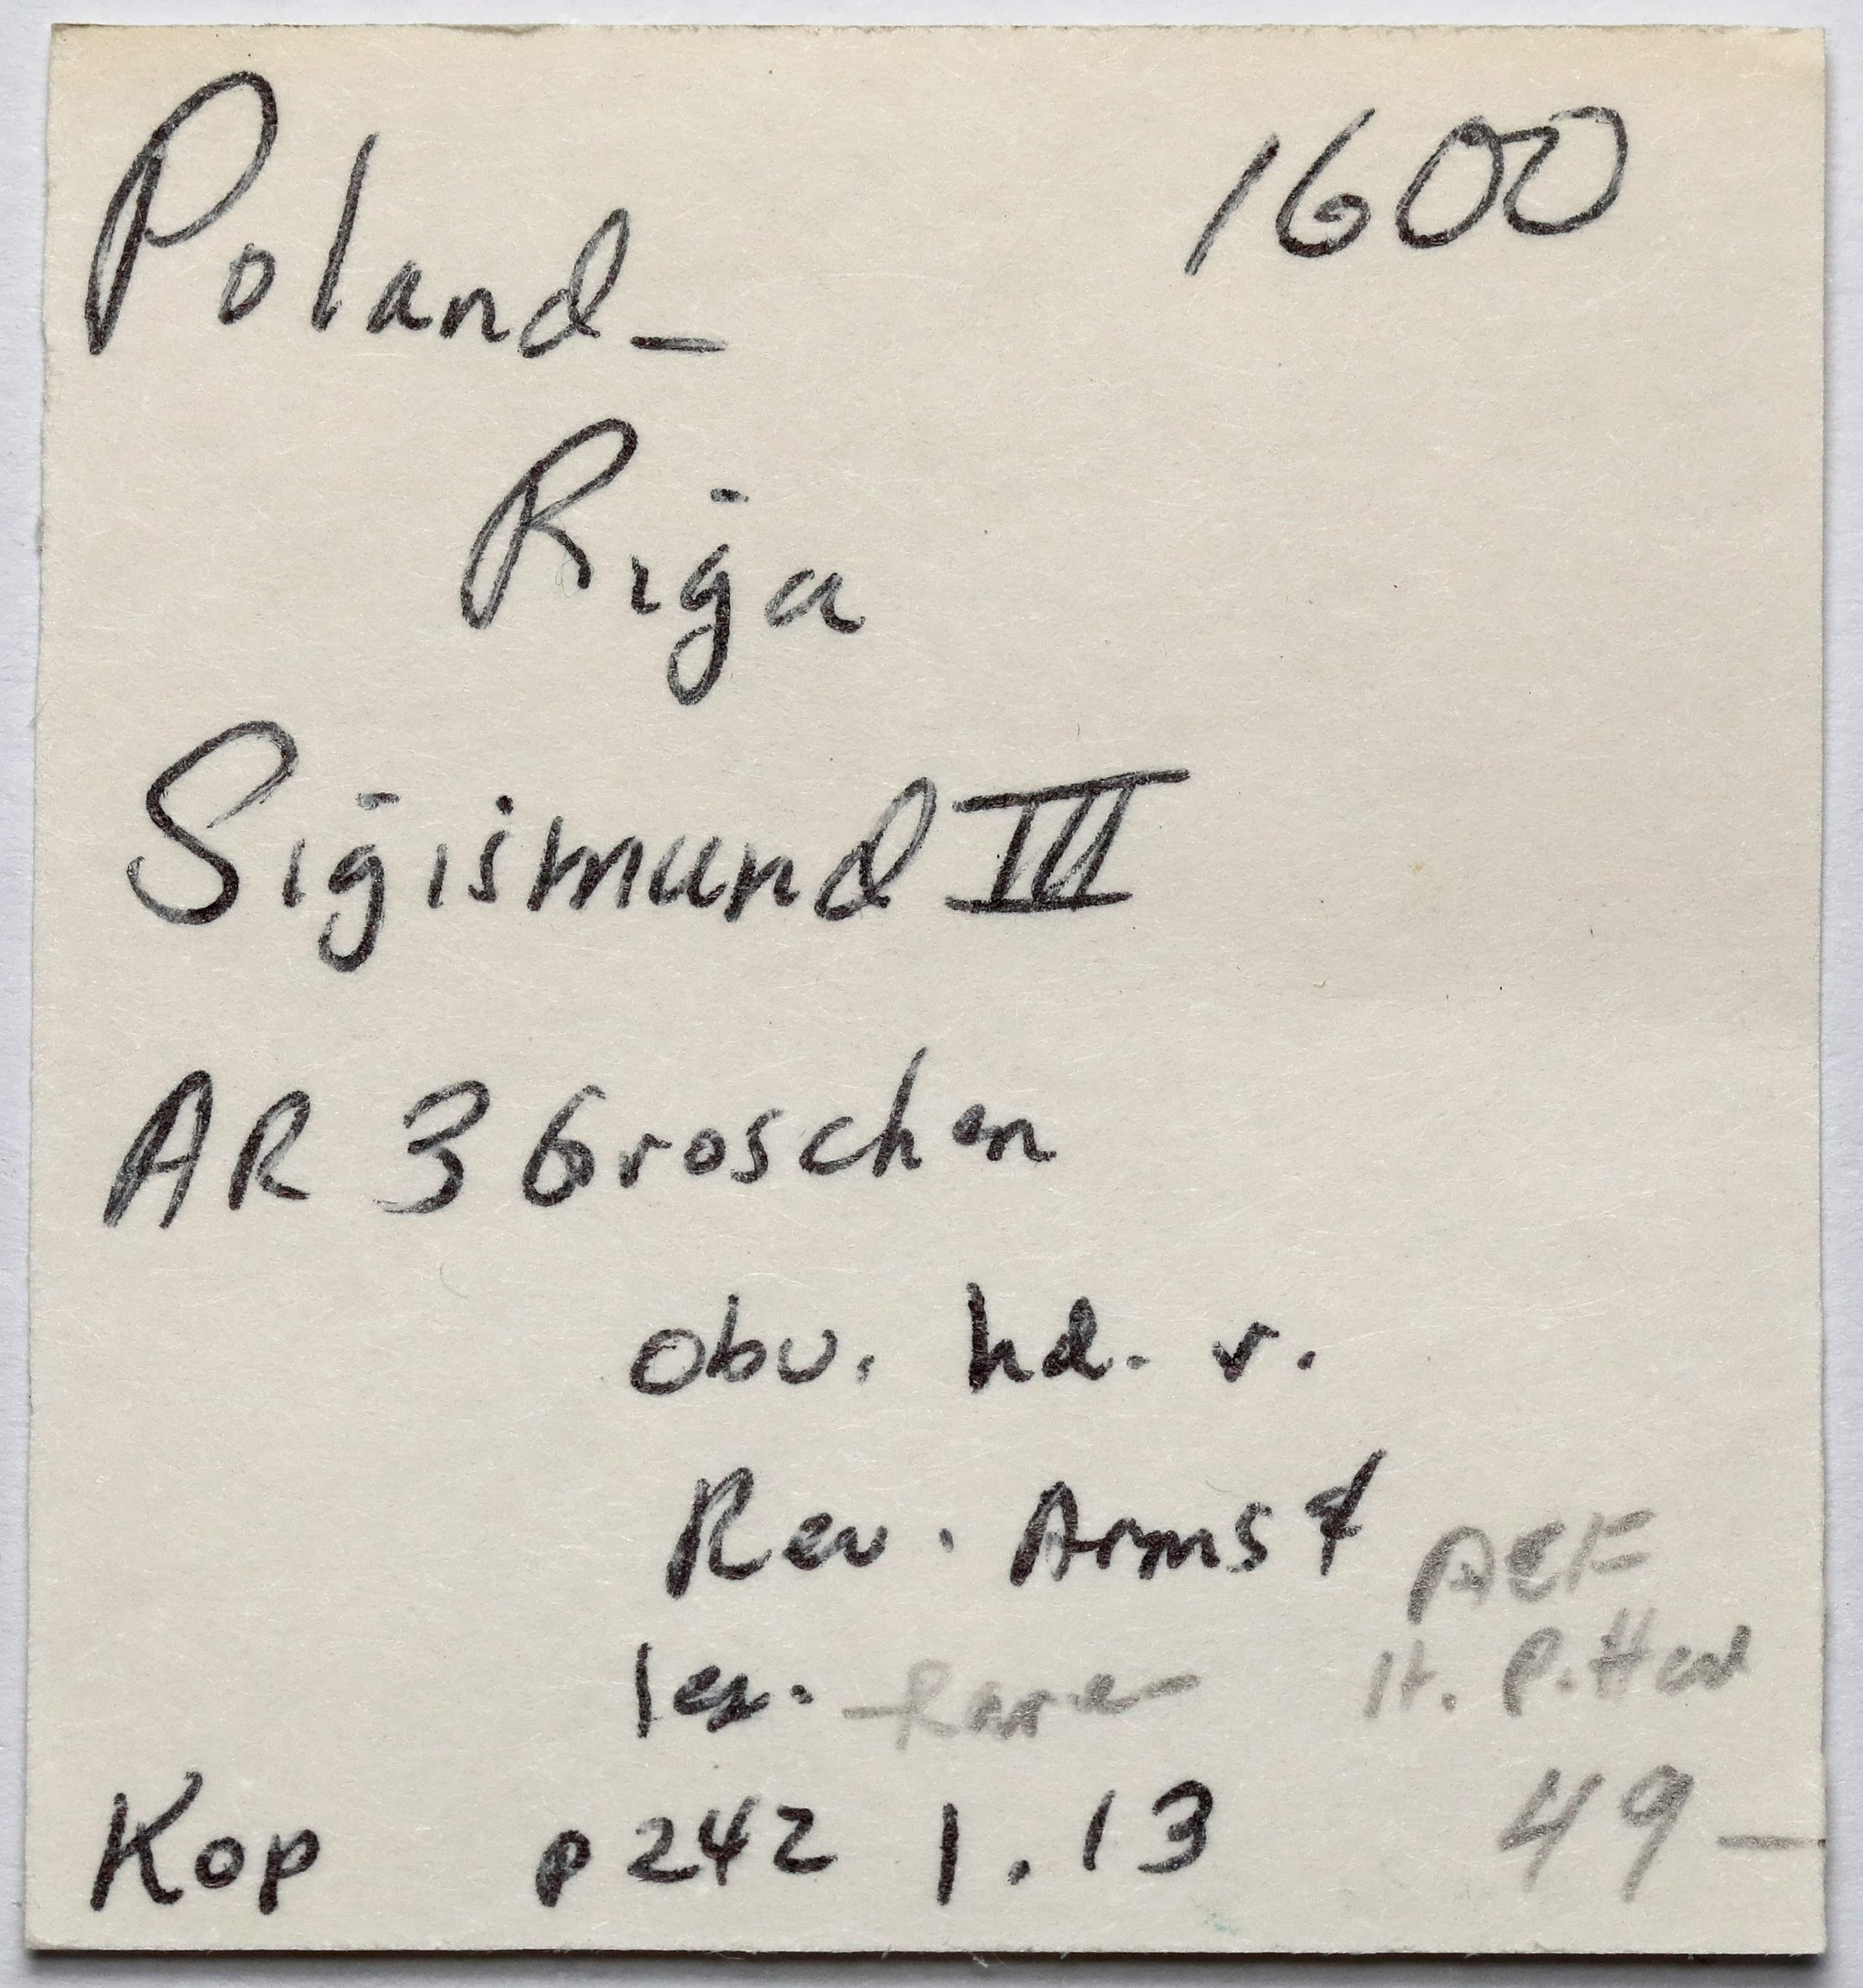 Poland- 1600
Riga
Sigismund III
AR 3 Groschen
Obv. hd. r.
Rev. Arms &
AEF
leg. -Rare-
lt. P.
Kop p242 1.13
49-